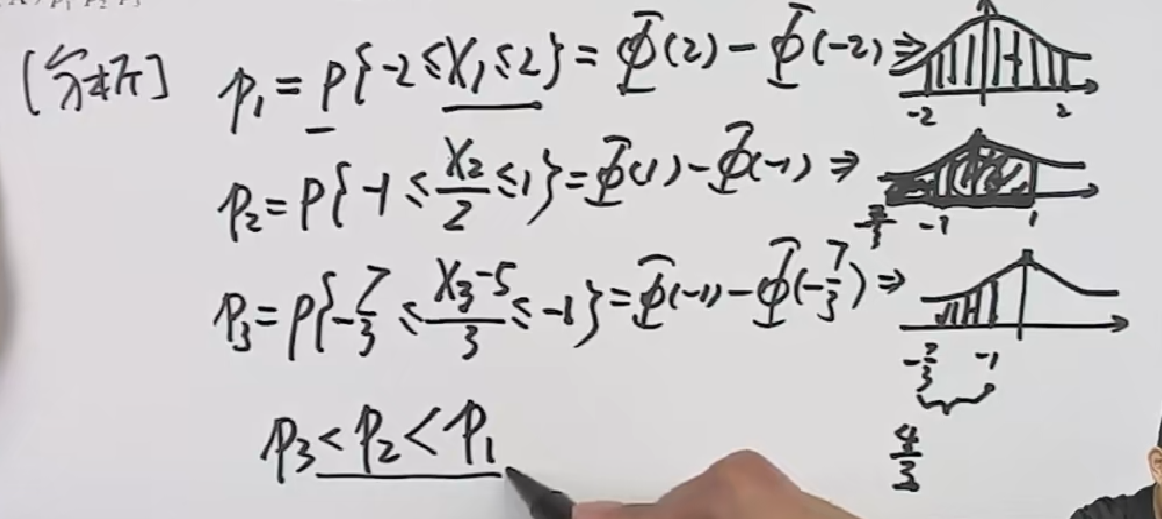 [分析] p₁ = P{-2 ≤ X₁ ≤ 2} = Φ(2) - Φ(-2) ⇒
-2 2
p₂ = P{-1 ≤ X₂/2 ≤ 1} = Φ(1) - Φ(-1) ⇒
-1 1
p₃ = P{-7/3 ≤ (X₃-5)/3 ≤ -1} = Φ(-1) - Φ(-7/3) ⇒
-7/3 -1
p₃ < p₂ < p₁
4/3